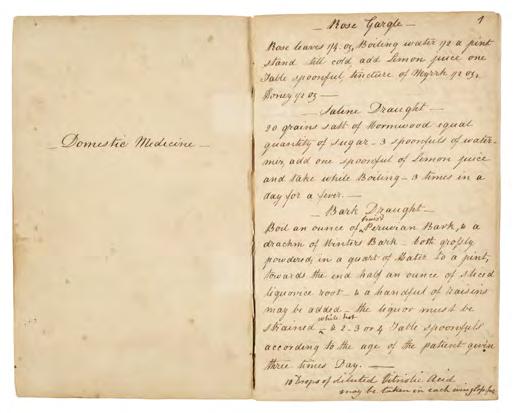 – Domestic Medicine –
1
– Rose Gargle –
Rose leaves 1/4 oz, Boiling water 1/2 a pint
stand till cold, add Lemon juice one
Table spoonful, tincture of Myrrh 1/2 oz,
Honey 1/2 oz —
– Saline Draught –
20 grains salt of Wormwood equal
quantity of sugar – 3 spoonfuls of water –
mix, add one spoonful of Lemon juice
and take while Boiling – 3 times in a
day for a fever. —
– Bark Draught –
bruised
Boil an ounce of Peruvian Bark, & a
drachm of Winters Bark – both grossly
powdered, in a quart of Water to a pint,
towards the end half an ounce of sliced
liquorice root – & a handful of raisins
may be added – the liquor must be
while hot
strained – & 2 - 3 or 4 Table spoonfuls
according to the age of the patient given
three times Day. —
10 Drops of diluted Vitriolic Acid
may be taken in each